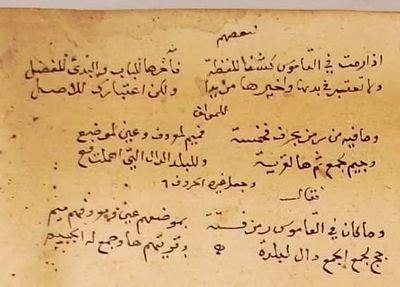 لبعضهم
اذا رمت في القاموس كشفا للفظة فآخرها للباب والبدئ للفصل
ولا تعتبر في بدئها واخيرها مزيدا ولكن اعتبارك للاصل
للمؤلف
وما فيه من رمز بحرف فخمسة فميم لمعروف وعين لموضع
وجيم لجمع ثم هاء لقرية وللبلد الدال التي اهملت فع
وجعل غيره الحروف ٦
فقال
وما كان في القاموس رمز فستة بموضعهم عين ومعروفهم ميم
جج لجمع الجمع دال لبلدة وقريتهم ها وجمع له الجيم